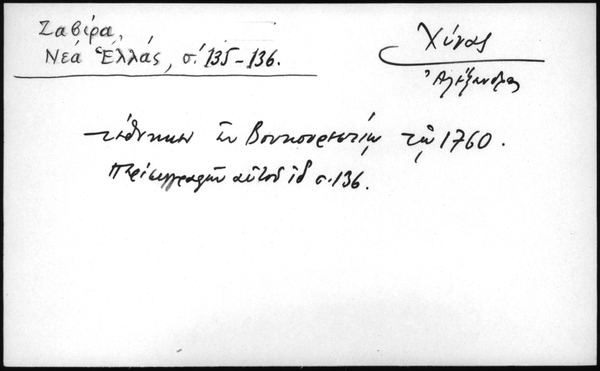 Ζαβίρα,
Νεά Ἑλλάς, σ. 135-136.
Χίνας
Ἀλέξανδρος
τέθνηκεν ἐν Βουκουρεστίῳ τῷ 1760.
περί συγγραφῶν αὐτοῦ ἰδ σ. 136.